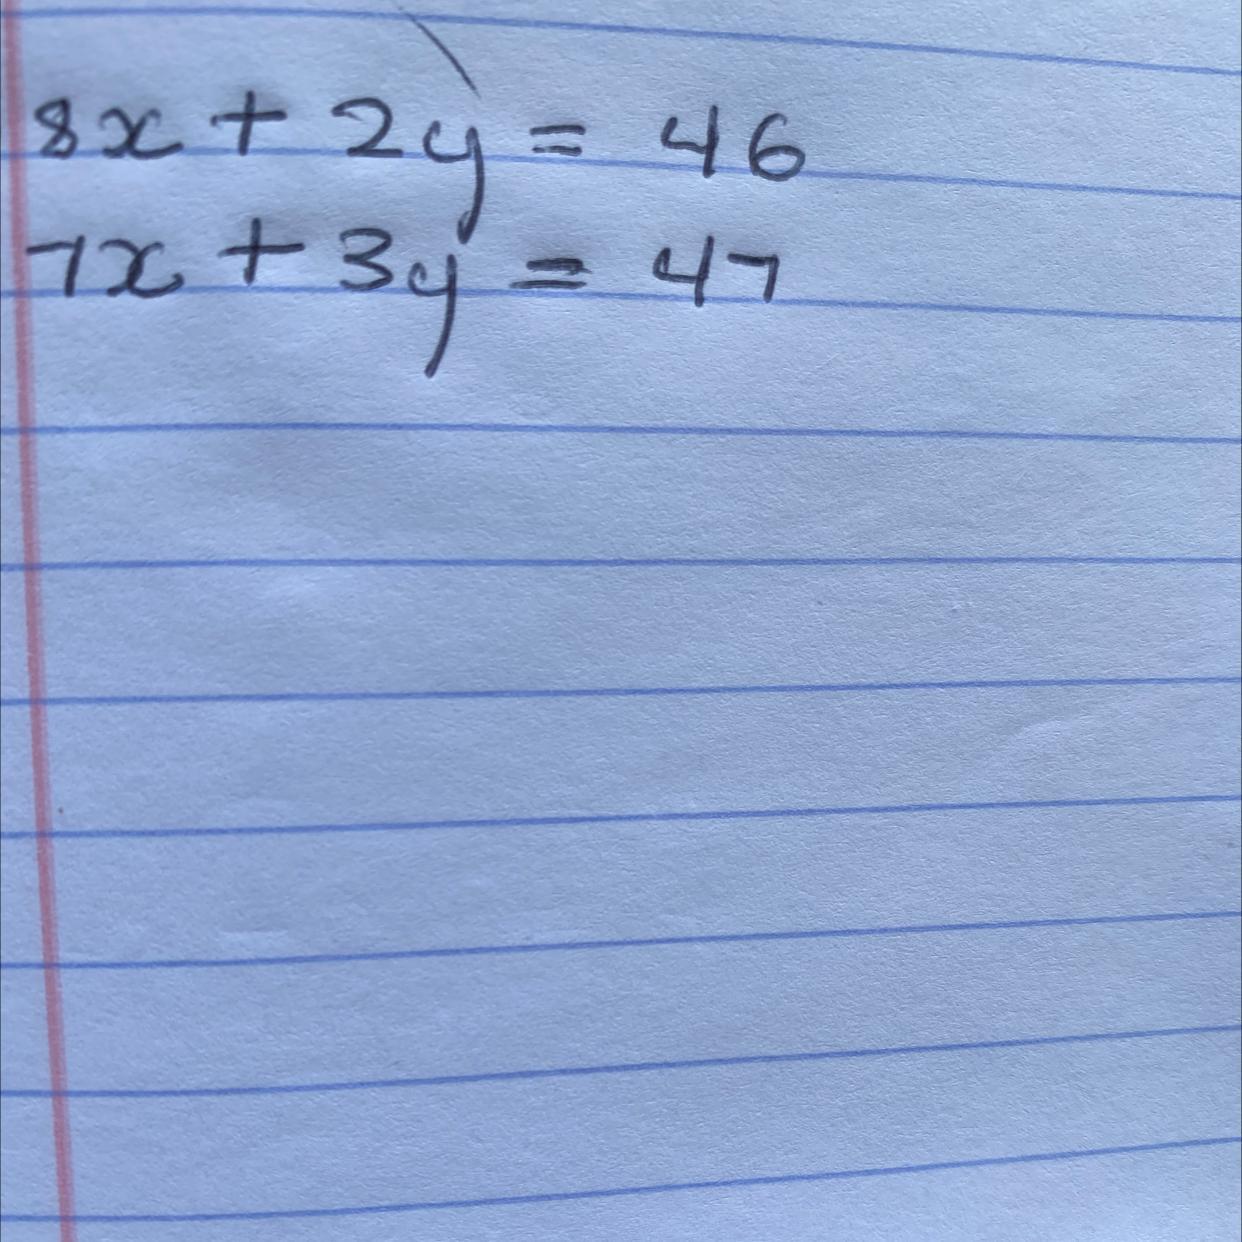 8x + 2y = 46
7x + 3y = 47